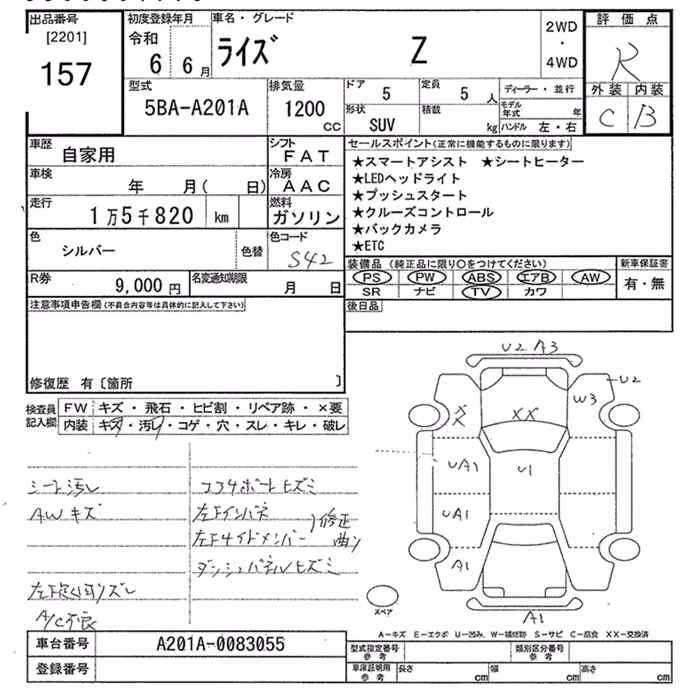 出品番号 初度登録年月 車名・グレード 2WD ・ 4WD 評価点
[2201] 令和
157 6 6月 ライズ Z R
外装 内装
C B
型式 排気量 ドア 5 定員 5人 ディーラー・並行
5BA-A201A 1200 CC 形状 SUV 積載 kg モデル年式 年
ハンドル 左・右
車歴 自家用 シフト FAT セールスポイント(正常に機能するものに限ります)
車検 年 月( 日) 冷房 AAC
★スマートアシスト ★シートヒーター
★LEDヘッドライト
★プッシュスタート
★クルーズコントロール
★バックカメラ
★ETC
走行 1万5千820 km 燃料 ガソリン
色 シルバー 色替 色コード S42
装備品 (純正品に限り○をつけてください) 新車保証書
PS PW ABS エアB AW 有・無
SR ナビ TV カワ
R券 9,000円 名変通知期限 月 日
後日品
注意事項申告欄(不具合内容等は具体的に記入して下さい)
修復歴 有〔箇所 〕
検査員記入欄 FW キズ・飛石・ヒビ割・リペア跡・×要
内装 キズ・汚レ・コゲ・穴・スレ・キレ・破レ
シート汚レ
AWキズ
A/C不良
コアサポートヒズミ
左Fインパネ
左Fサイドメンバー
修正
曲リ
ダッシュパネルヒズミ
U2 A3
U2
W3
XX
UA1
U1
UA1
A1
A1
スペア
A-キズ E-エクボ U-凹み、W-補修跡 S-サビ C-腐食 XX-交換済
車台番号 A201A-0083055
登録番号
型式指定番号 参考 類別区分番号 参考
車庫証明用 参考 長さ cm 幅 cm 高さ cm